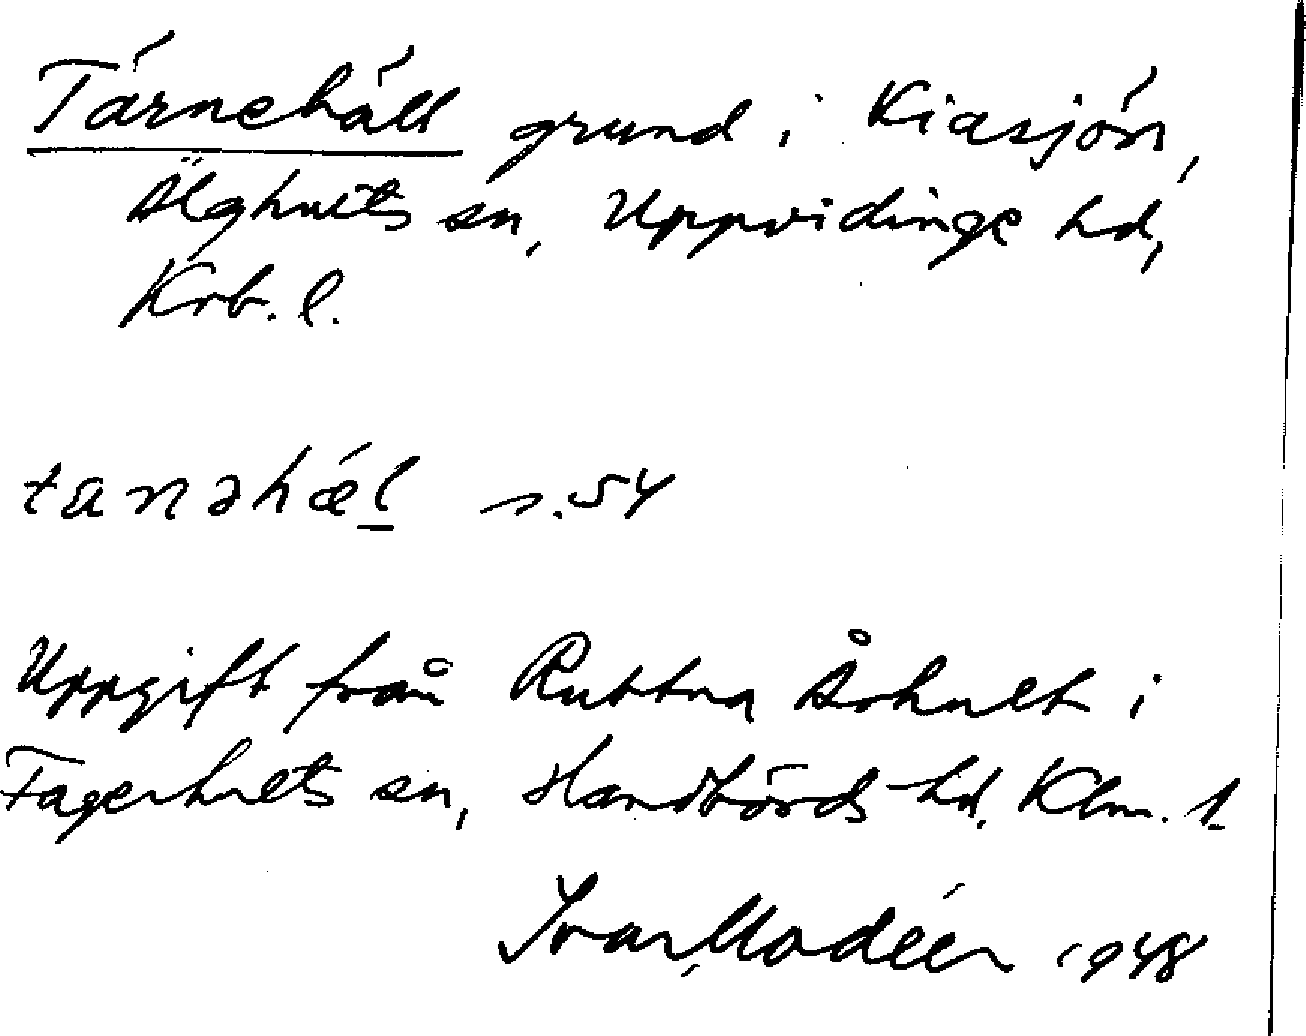 Tärnehäll grund i Kiasjön,
Älghults sn, Uppvidinge hd,
Krb. l.
tanəhæl s. 54
Uppgift från Ruttna Åshult i
Fagerhults sn, Handbörds hd, Klm. l.
Ivar Modéer 1948